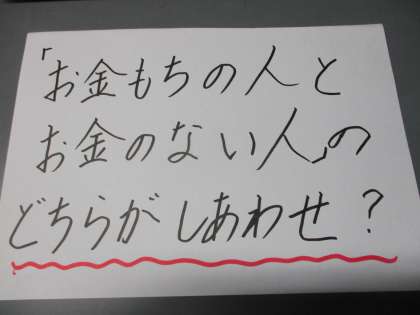 「お金もちの人と
お金のない人」の
どちらがしあわせ？